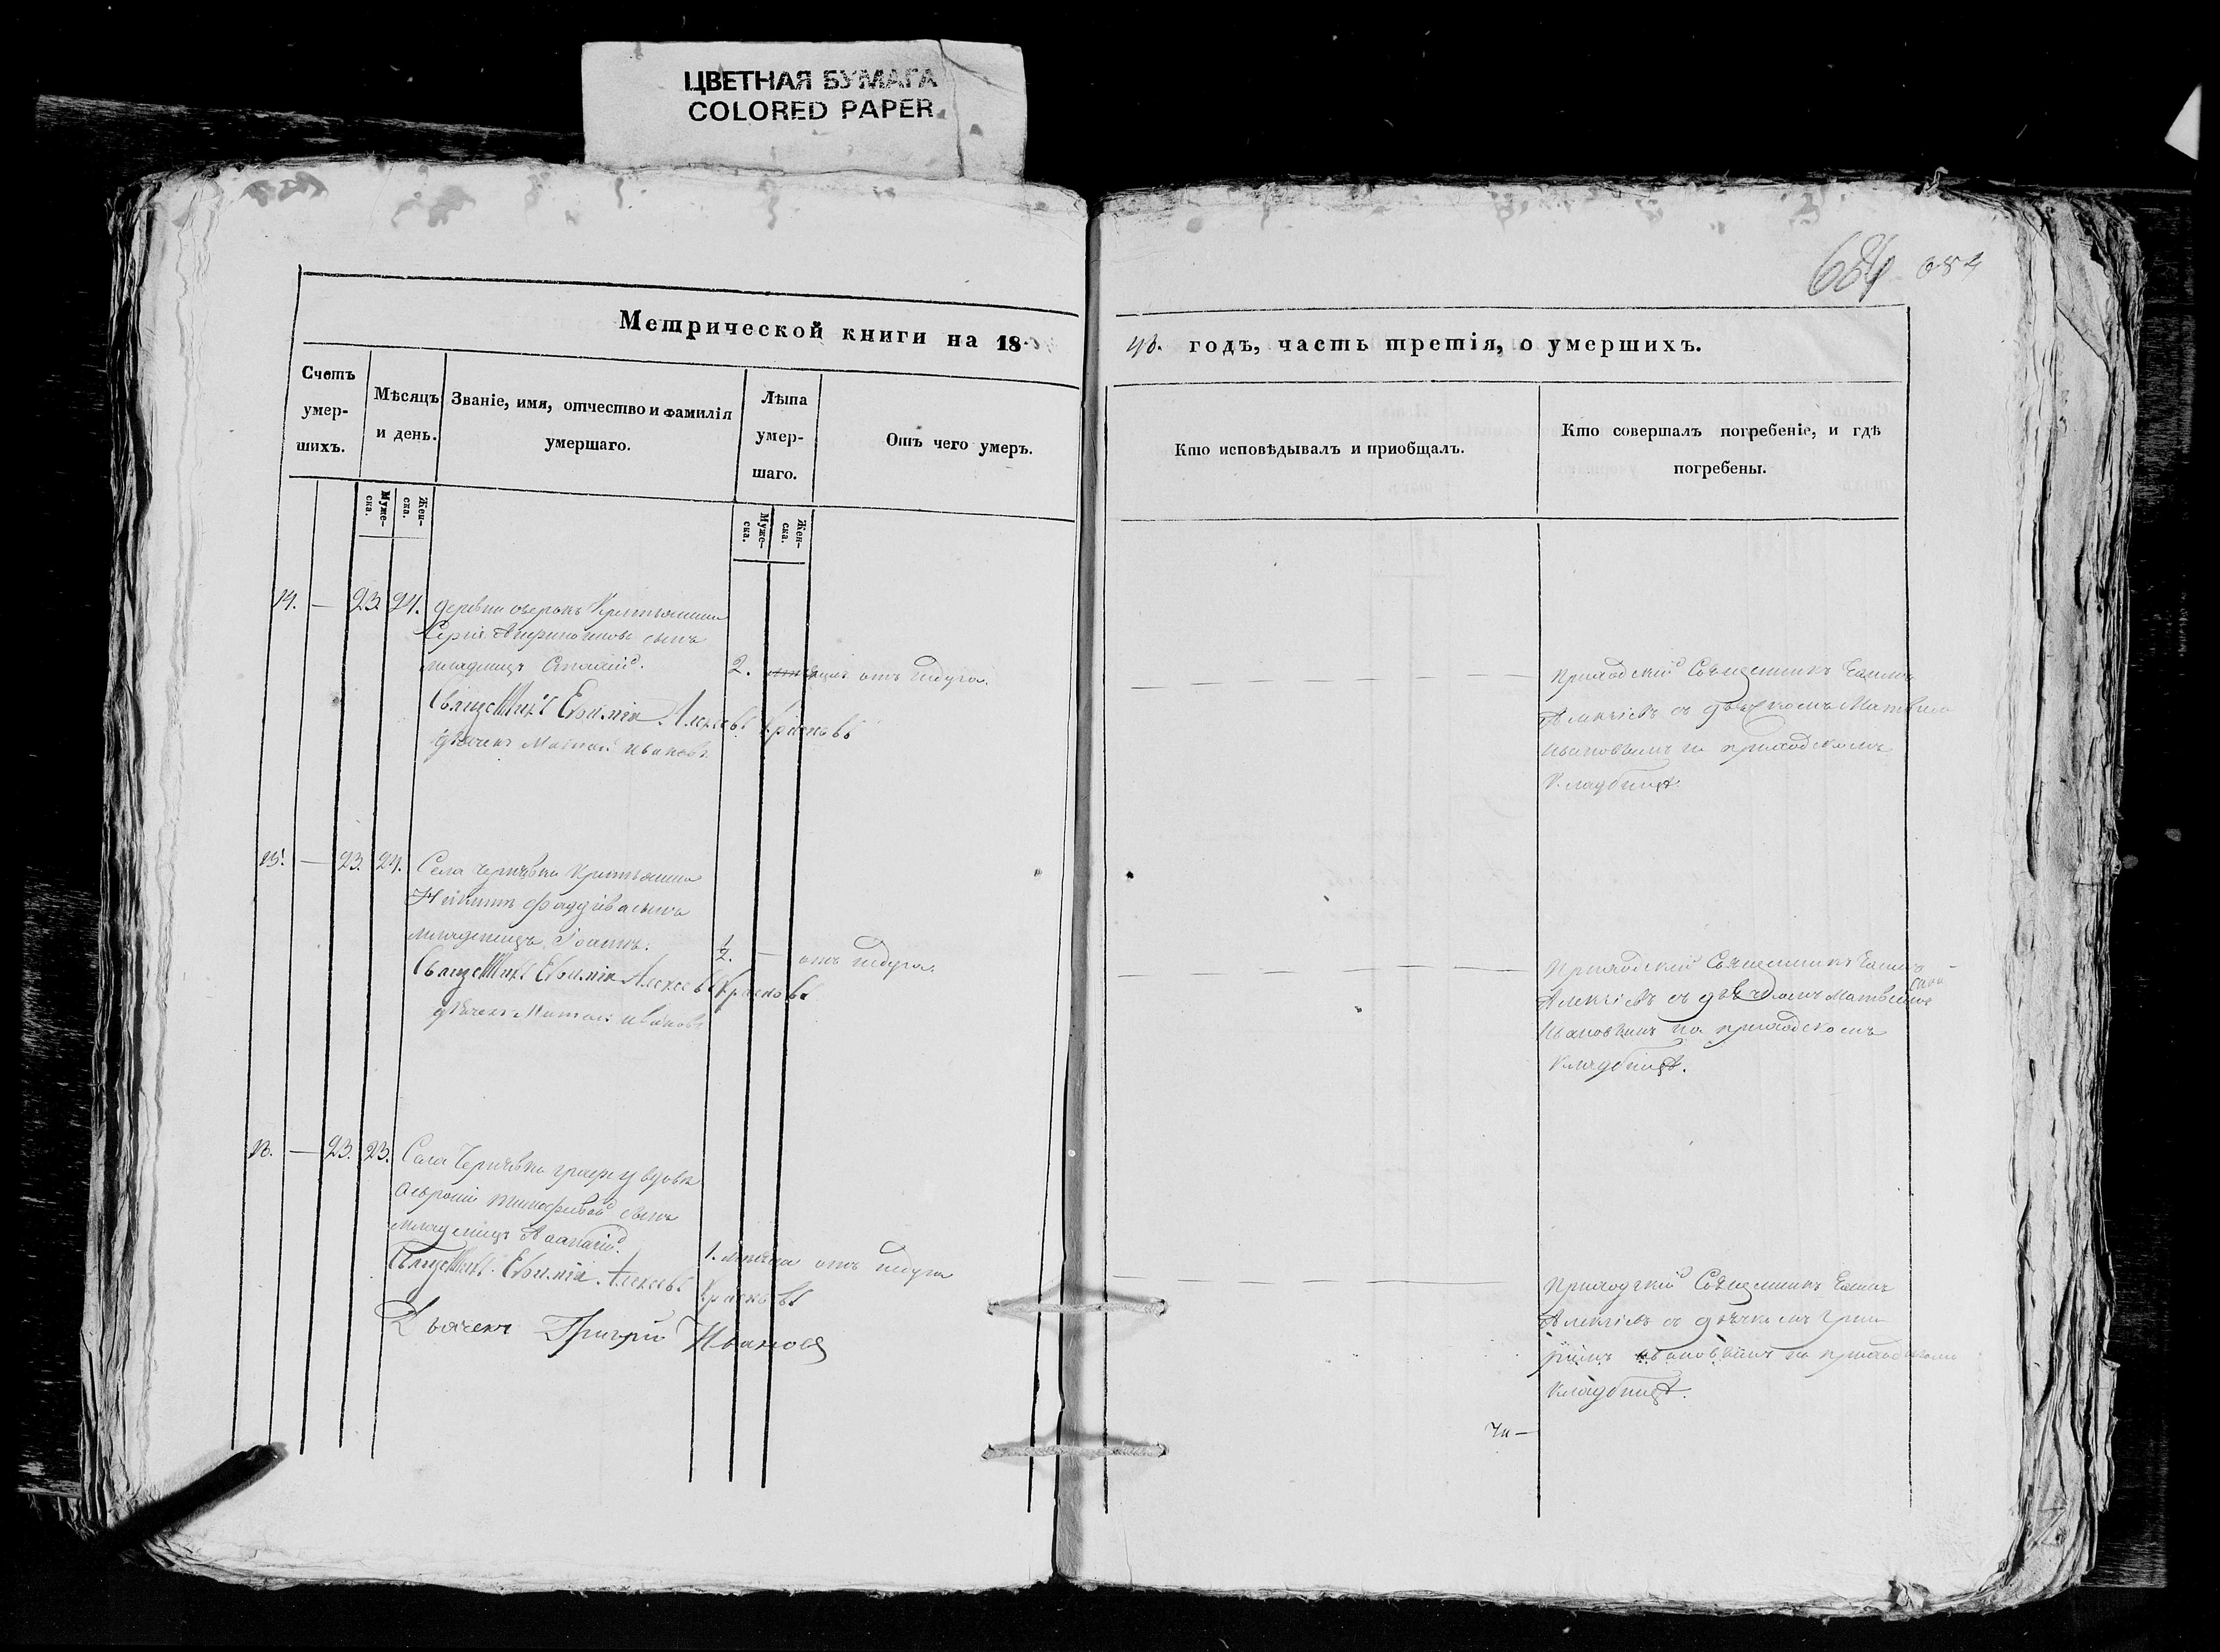 ЦВЕТНАЯ БУМАГА
COLORED PAPER
684 684
Метрической книги на 18
43. годъ, часть третія, о умершихъ.
Счетъ умер-шихъ.
Мѣсяцъ и день.
Званіе, имя, отчество и фамилія умершаго.
Лѣта умер-шаго.
Отъ чего умеръ.
Кто исповѣдывалъ и приобщалъ.
Кто совершалъ погребеніе, и гдѣ погребены.
Муже-ска.
Жен-ска.
Муже-ска.
Жен-ска.
14. — 23 24. деревни озерокъ Крестьянина
Сергія сынъ
младенецъ
2. отъ недуга.
Священникъ Евѳимій Алексѣевъ Красновъ
дьячекъ Матѳей Ивановъ
Приходскій Священникъ Евѳимъ
Алексѣевъ съ дьячкомъ Матвѣемъ
Ивановымъ на приходскомъ
Кладбищѣ
15. — 23. 24. Села Чернѣвки Крестьянина
Никиты Фаддѣева сынъ
младенецъ Іоаннъ.
1/2. — отъ недуга.
Священникъ Евѳимій Алексѣевъ Красновъ
дьячекъ Матѳей Ивановъ
Приходскій Священникъ Евѳимъ
Алексѣевъ съ дьячкомъ Матвѣемъ
Ивановымъ на приходскомъ
Кладбищѣ.
— 23. 23. Села Чернѣвки вдовы
Тимофеевой сынъ
младенецъ Аѳанасій.
1. отъ недуга
Священникъ Евѳимій Алексѣевъ Красновъ
Дьячекъ Григрій Ивановъ
Приходскій Священникъ Евѳимъ
Алексѣевъ съ дьячкомъ Григо
ріемъ Ивановымъ на приходскомъ
Кладбищѣ.